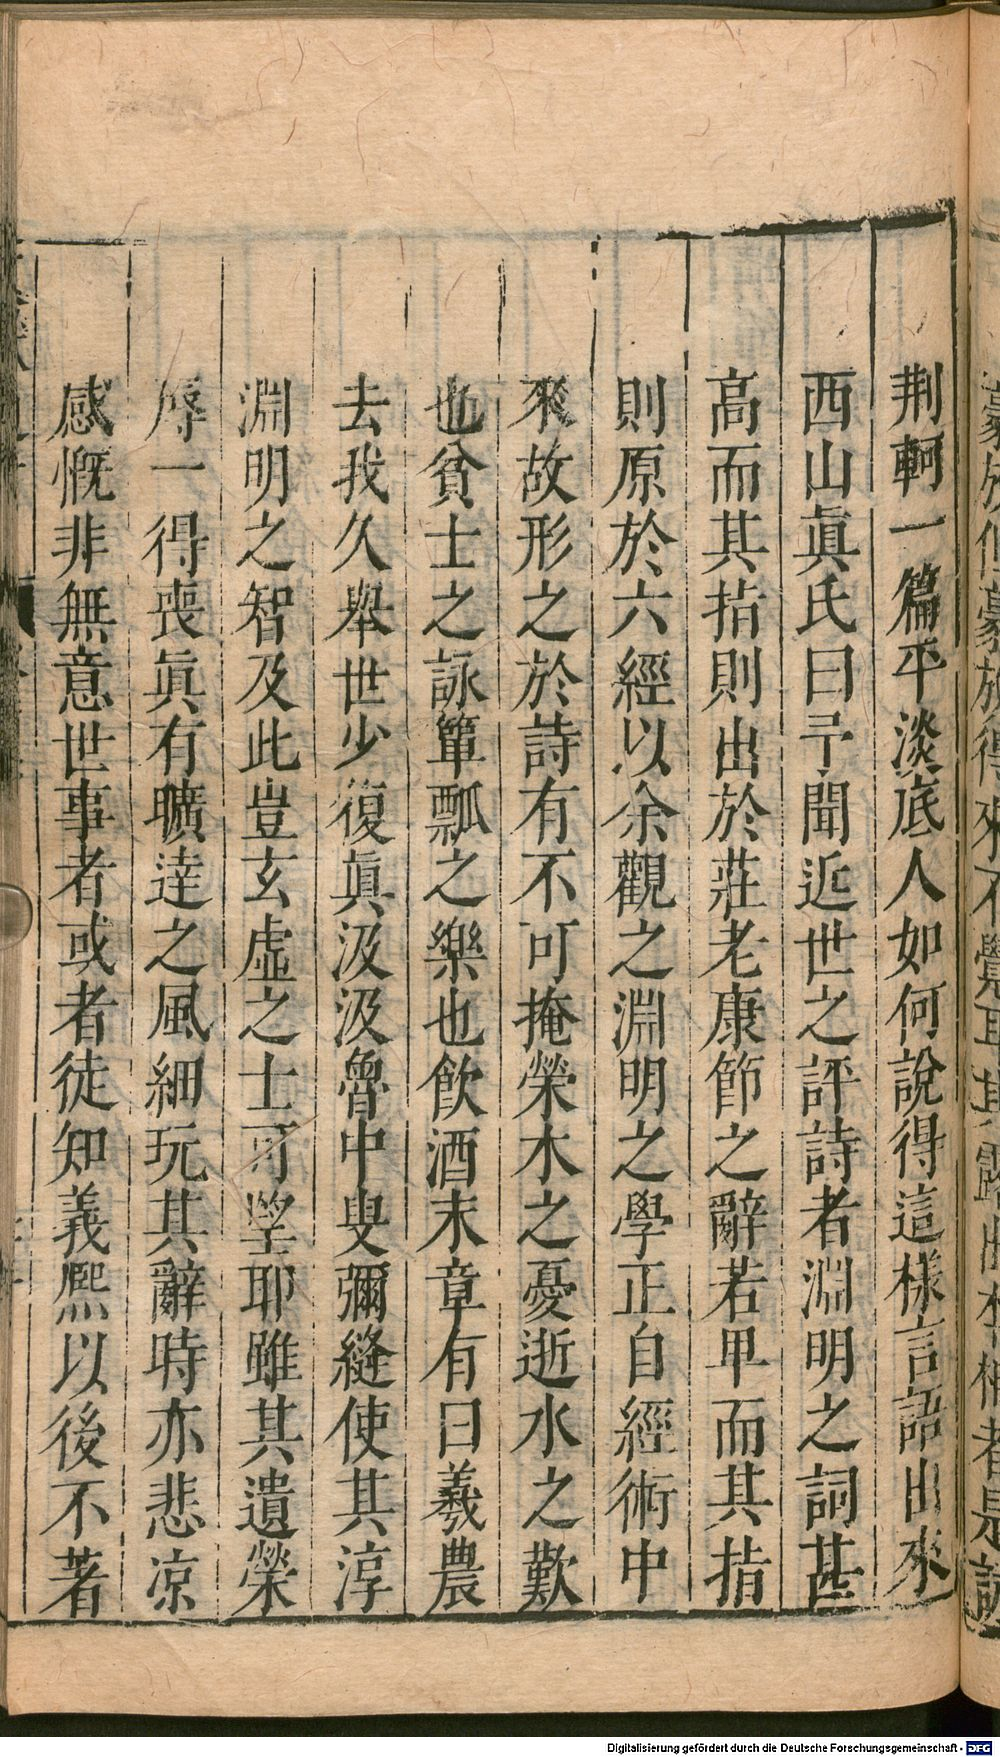 荆軻一篇平淡底人如何說得這樣言語出來
西山眞氏曰予聞近世之評詩者淵明之詞甚
高而其指則出於莊老康節之辭若卑而其指
則原於六經以余觀之淵明之學正自經術中
來故形之於詩有不可掩榮木之憂逝水之歎
也貧士之詠簞瓢之樂也飮酒末章有曰羲農
去我久舉世少復眞汲汲魯中叟彌縫使其淳
淵明之智及此豈玄虛之士可望耶雖其遺榮
辱一得喪眞有曠逹之風細玩其辭時亦悲凉
感慨非無意世事者或者徒知義熙以後不著
Digitalisierung gefördert durch die Deutsche Forschungsgemeinschaft - DFG